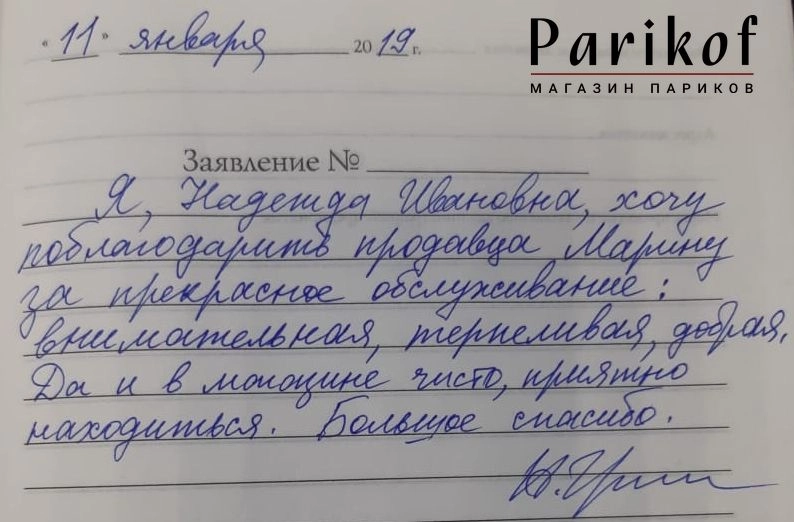 "11" января 2019 г.
Parikof
МАГАЗИН ПАРИКОВ
Заявление №
Я, Надежда Ивановна, хочу
поблагодарить продавца Марину
за прекрасное обслуживание:
внимательная, терпеливая, добрая.
Да и в магазине чисто, приятно
находиться. Большое спасибо.